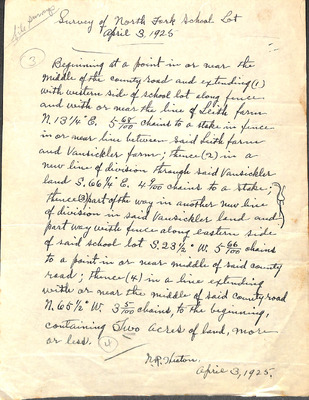 Survey of North Fork School Lot
April 3, 1925
(3)
Beginning at a point in or near the
middle of the county road and extending (1)
with western side of school lot along fence
and with or near the line of Leith farm
N. 13 1/4° E. 5 68/100 chains to a stake in fence
in or near line between said Leith farm
and Vansickler farm; thence (2) in a
new line of division through said Vansickler
land S. 66 1/4° E. 4 /100 chains to a stake;
thence (3) part of the way in another new line
of division in said Vansickler land and
part way with fence along eastern side
of said school lot S. 23 1/2° W. 5 66/100 chains
to a point in or near middle of said county
road; thence (4) in a line extending
with or near the middle of said county road
N. 65 1/2° W. 3 5/100 chains to the beginning,
containing Two acres of land, more
or less.
April 3, 1925.